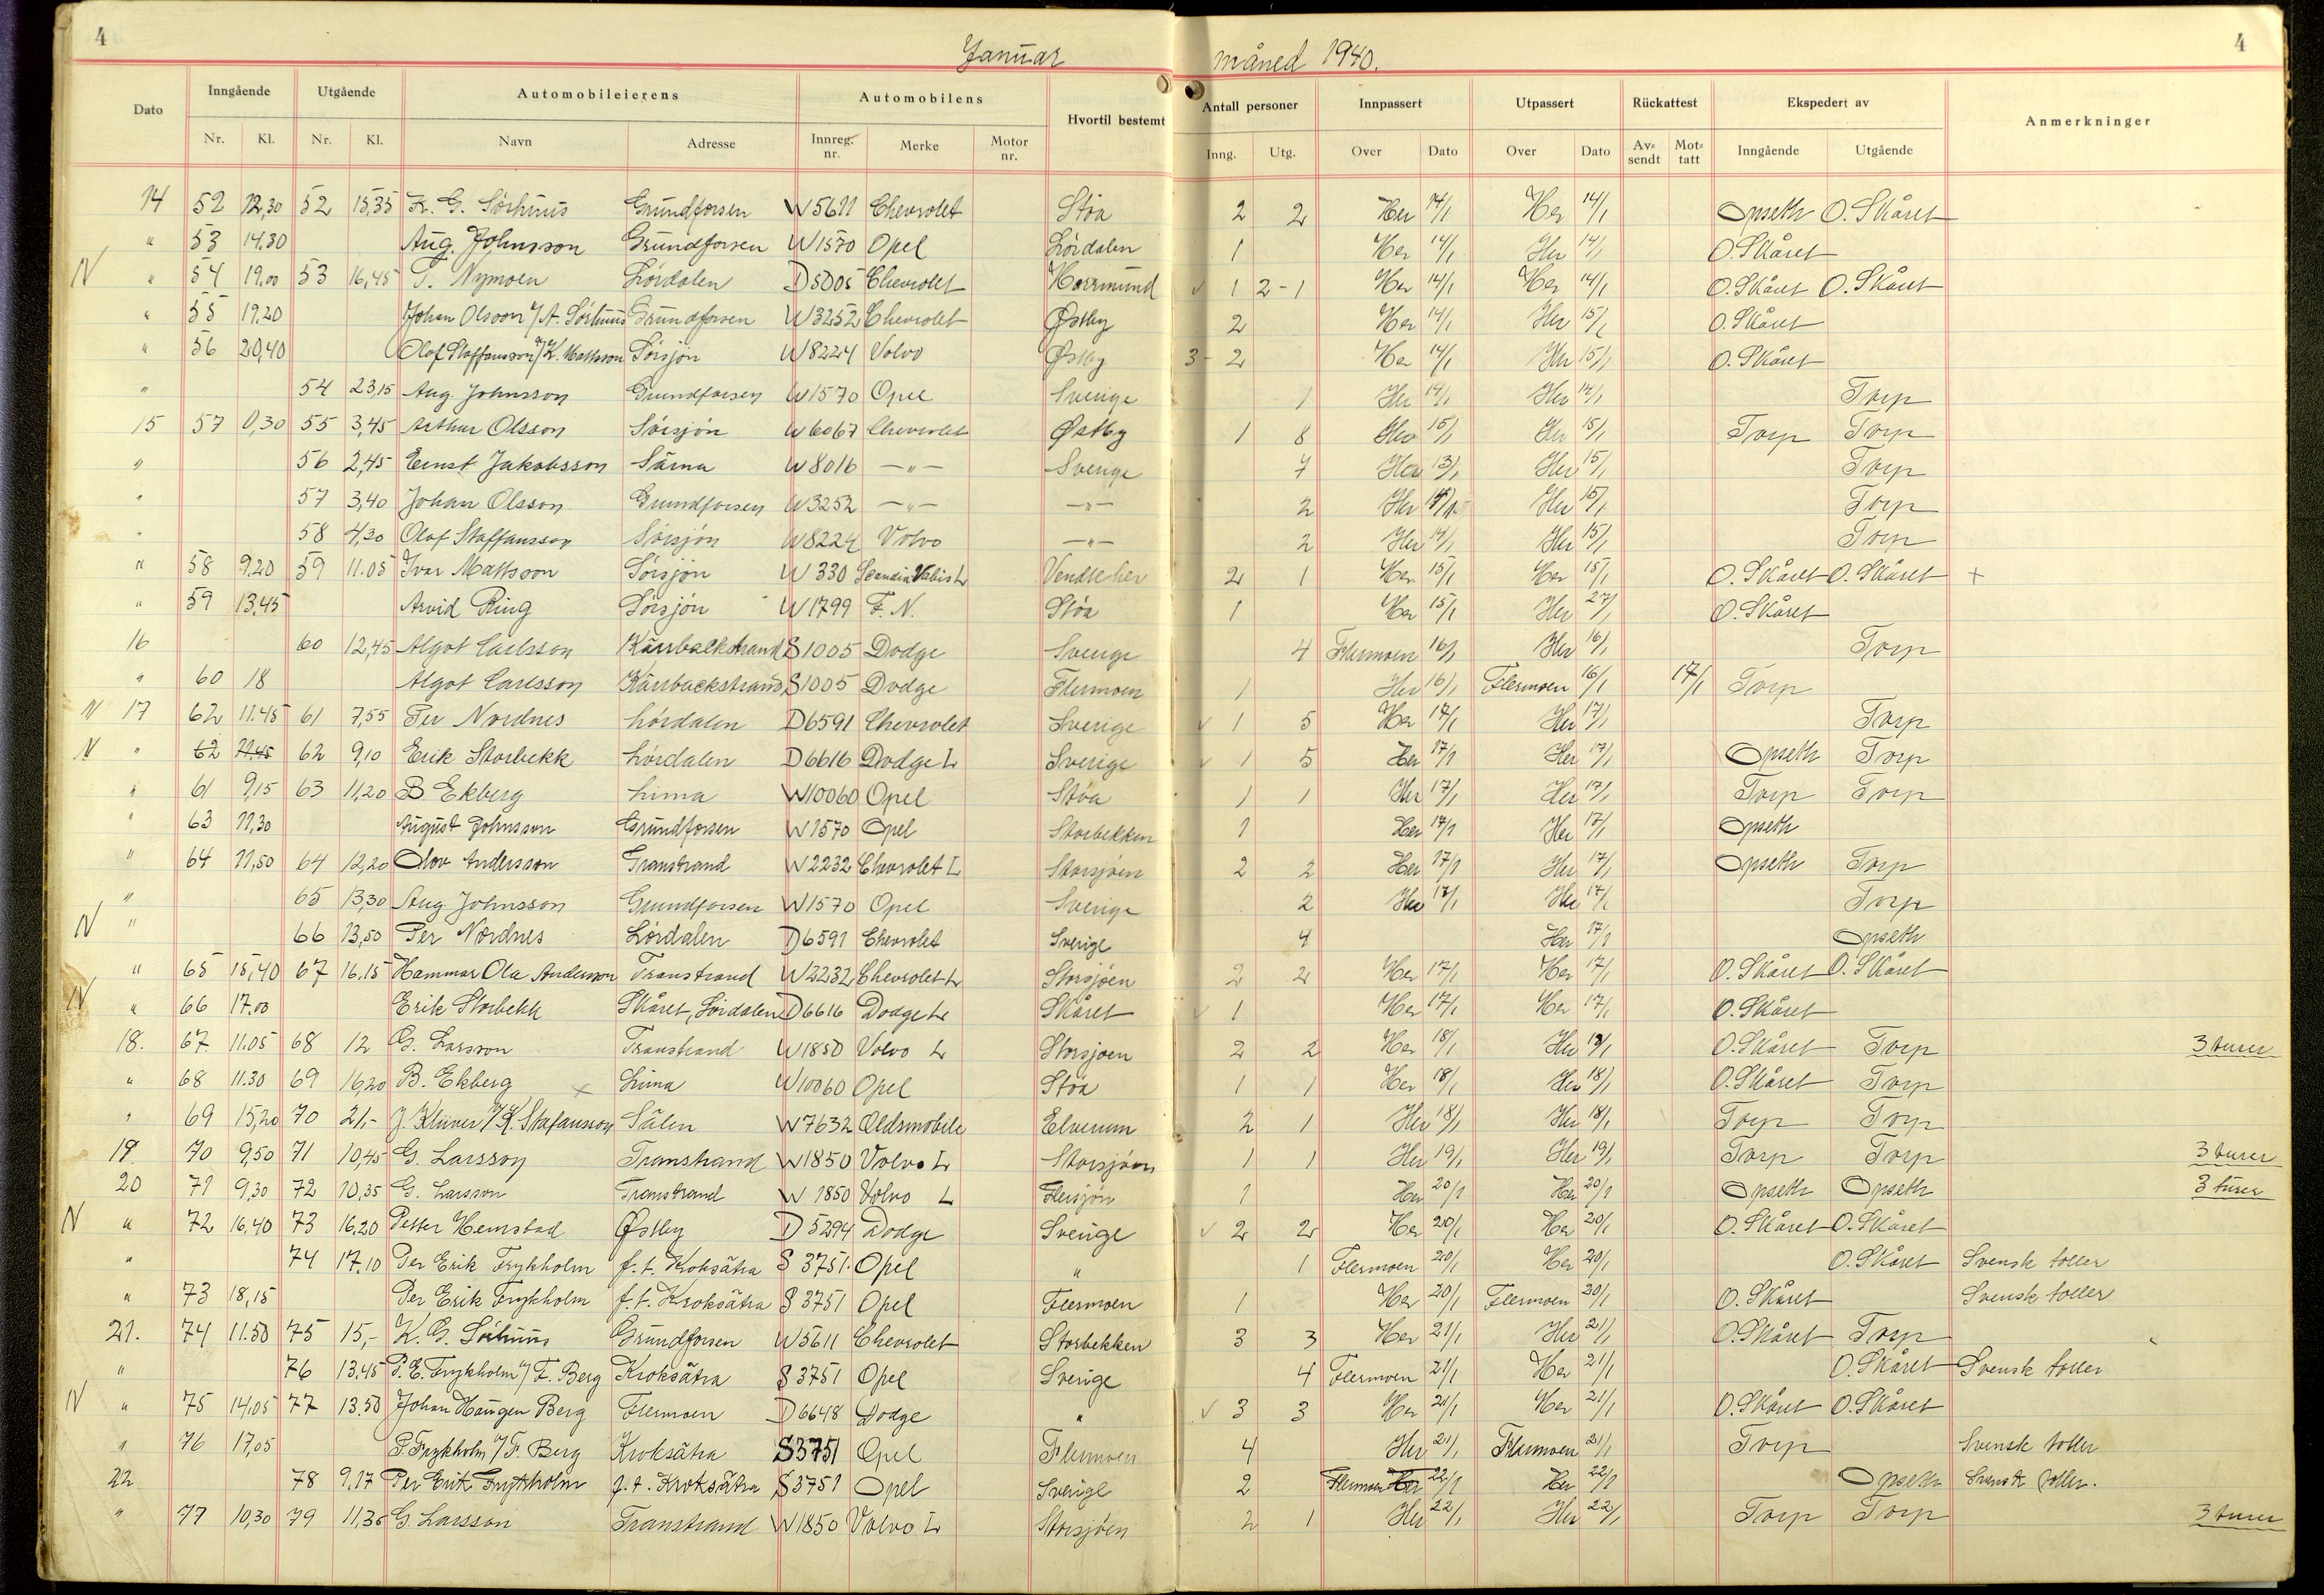 4
Januar måned 1940.
4
Dato Inngående Utgående Automobileierens Automobilens Hvortil bestemt Antall personer Innpassert Utpassert Rückattest Ekspedert av Anmerkninger
Nr. Kl. Nr. Kl. Navn Adresse Innreg. nr. Merke Motor nr. Inng. Utg. Over Dato Over Dato Av-sendt Mot-tatt Inngående Utgående
14 52 12,30 52 15,35 K. G. Sörhuus Grundforsen W5611 Chevrolet Støa 2 2 Her 14/1 Her 14/1 Opseth O. Skåret
" 53 14.30 Aug. Johnsson Grundforsen W1570 Opel Lördalen 1 Her 14/1 Her 14/1 O. Skåret
N " 54 19.00 53 16,45 T. Nymoen Lördalen D5005 Chevrolet Horrmund v 1 2-1 Her 14/1 Her 14/1 O. Skåret O. Skåret
" 55 19.20 Johan Olsson v/A. Sörhuus Grundforsen W3252 Chevrolet Østby 2 Her 14/1 Her 15/1 O. Skåret
" 56 20,40 Olof Staffansson v/K. Mattsson Sörsjön W8224 Volvo Østby 3-2 Her 14/1 Her 15/1 O. Skåret
" 54 23,15 Aug Johnsson Grundforsen W1570 Opel Sverige 1 Her 14/1 Her 14/1 Torp
15 57 0,30 55 3,45 Arthur Olsson Sörsjön W6067 Chevrolet Østby 1 8 Her 15/1 Her 15/1 Torp Torp
" 56 2,45 Ernst Jakobsson Särna W8016 —"— Sverige 7 Her 13/1 Her 15/1 Torp
" 57 3,40 Johan Olsson Grundforsen W3252 —"— —"— 2 Her 14/1 Her 15/1 Torp
" 58 4,20 Olof Staffansson Sörsjön W8224 Volvo —"— 2 Her 14/1 Her 15/1 Torp
" 58 9.20 59 11.05 Ivar Mattsson Sörsjön W330 Scandia Vabis L Vendte her 2 1 Her 15/1 Her 15/1 O. Skåret O. Skåret +
" 59 13.45 Arvid Ring Sörsjön W1799 F.N. Støa 1 Her 15/1 Her 27/1 O. Skåret
16 60 12,45 Algot Carlsson Kärrbackstrand S1005 Dodge Sverige 4 Flermoen 16/1 Her 16/1 Torp
" 60 18 Algot Carlsson Kärrbackstrand S1005 Dodge Flermoen 1 Her 16/1 Flermoen 16/1 17/1 Torp
N 17 62 11.45 61 7,55 Per Nordnes Lördalen D6591 Chevrolet Sverige v 1 5 Her 17/1 Her 17/1 Torp
N " 62 11.45 62 9,10 Erik Storbekk Lördalen D6616 Dodge L Sverige v 1 5 Her 17/1 Her 17/1 Opseth Torp
" 61 9,15 63 11,20 B. Ekberg Lima W10060 Opel Støa 1 1 Her 17/1 Her 17/1 Torp Torp
" 63 11,30 August Johnsson Grundforsen W1570 Opel Storbekken 1 Her 17/1 Her 17/1 Opseth
" 64 11,50 64 12,20 Olov Andersson Transtrand W2232 Chevrolet L Storsjöen 2 2 Her 17/1 Her 17/1 Opseth Torp
" 65 13,30 Aug Johnsson Grundforsen W1570 Opel Sverige 2 Her 17/1 Her 17/1 Torp
N " 66 13,50 Per Nordnes Lördalen D6591 Chevrolet Sverige 4 Her 17/1 Opseth
" 65 15,40 67 16.15 Hammar Ola Andersson Transtrand W2232 Chevrolet L Storsjöen 2 2 Her 17/1 Her 17/1 O. Skåret O. Skåret
N " 66 17.00 Erik Storbekk Skåret, Lördalen D6616 Dodge L Skåret v 1 Her 17/1 Her 17/1 O. Skåret
18. 67 11.05 68 12 G. Larsson Transtrand W1850 Volvo L Storsjoen 2 2 Her 18/1 Her 18/1 O. Skåret Torp 3 turer
" 68 11.30 69 16,20 B. Ekberg x Lima W10060 Opel Støa 1 1 Her 18/1 Her 18/1 O. Skåret Torp
" 69 15,20 70 21,- J. Klüver v/K. Stafansson Sälen W7632 Oldsmobile Elverum 2 1 Her 18/1 Her 18/1 Torp Torp
19 70 9,50 71 10,45 G. Larsson Transtrand W1850 Volvo L Storsjöen 1 1 Her 19/1 Her 19/1 Torp Torp 3 turer
20 71 9,30 72 10,35 G. Larsson Transtrand W1850 Volvo L Flersjön 1 Her 20/1 Her 20/1 Opseth Opseth 3 turer
N " 72 16.40 73 16.20 Petter Hemstad Østby D5294 Dodge Sverige v 2 2 Her 20/1 Her 20/1 O. Skåret O. Skåret
" 74 17.10 Per Erik Frykholm f.t. Kroksätra S3751. Opel " 1 Flermoen 20/1 Her 20/1 O. Skåret Svensk toller
" 73 18,15 Per Erik Frykholm f.t. Kroksätra S3751 Opel Flermoen 1 Her 20/1 Flermoen 20/1 O. Skåret Svensk toller
21. 74 11.50 75 15,- K. G. Sörhuus Grundforsen W5611 Chevrolet Storbekken 3 3 Her 21/1 Her 21/1 O. Skåret Torp
" 76 13.45 P. E. Frykholm v/F. Berg Kroksätra S3751 Opel Sverige 4 Flermoen 21/1 Her 21/1 O. Skåret Svensk toller
N " 75 14.05 77 13.50 Johan Haugen Berg Flermoen D6648 Dodge " v 3 3 Her 21/1 Her 21/1 O. Skåret O. Skåret
" 76 17,05 P. Frykholm v/F. Berg Kroksätra S3751 Opel Flermoen 4 Her 21/1 Flermoen 21/1 Torp Svensk toller
22 78 9.17 Per Erik Frykholm f.t. Kroksätra S3751 Opel Sverige 2 Flermoen Her 22/1 Her 22/1 Opseth Svensk toller.
" 77 10,30 79 11,35 G. Larsson Transtrand W1850 Volvo L Storsjöen 2 1 Her 22/1 Her 22/1 Torp Torp 3 turer